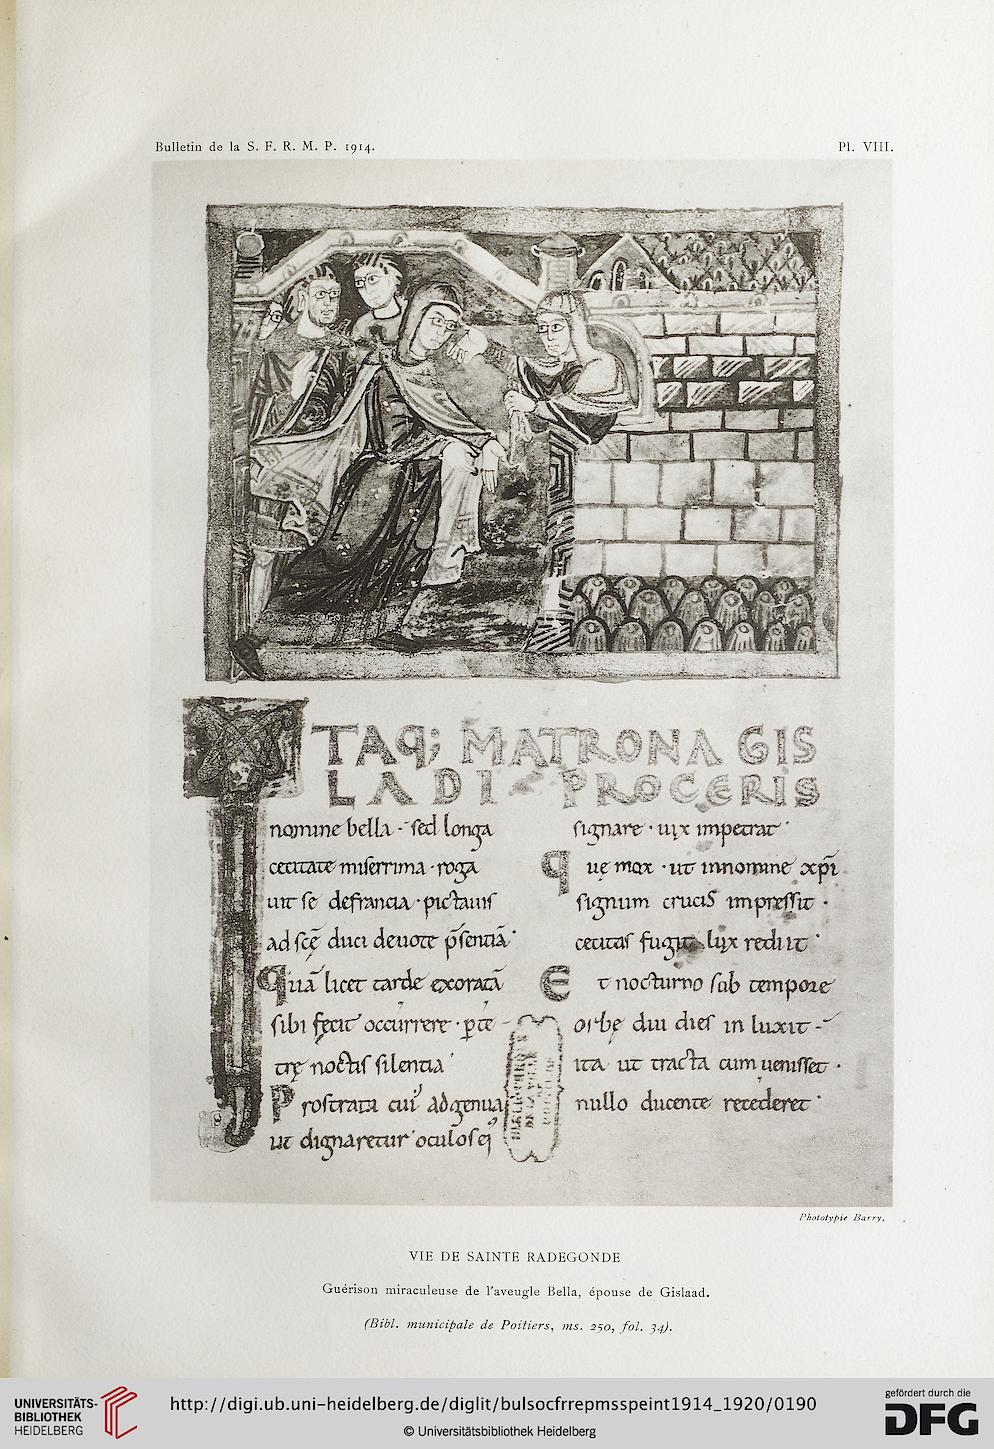 Bulletin de la S. F. R. M. P. 1914.
Pl. VIII.
ITAQ; MATRONA GIS
LADI PROCERIS
nomine bella · sed longa
cecitate miserrima · roga
uit se defrancia · pictauis
ad scę̄ duci deuote p̄sentiā ·
Quā licet tarde exoratā
sibi fecit occurrere · ꝑ te
trę noctis silentia
Prostrata cui' ad genua
ut dignaretur oculos ei'
signare · uix impetrat ·
Quę mox · ut innomine xp̄i
signum crucis impressit ·
cecitas fugit lux rediit ·
Et nocturno sub tempore
orbę diu dies in luxit
ita ut tracta cum uenisset ·
nullo ducente recederet ·
Phototypie Barry.
VIE DE SAINTE RADEGONDE
Guérison miraculeuse de l'aveugle Bella, épouse de Gislaad.
(Bibl. municipale de Poitiers, ms. 250, fol. 34).
UNIVERSITÄTS-
BIBLIOTHEK
HEIDELBERG
http://digi.ub.uni-heidelberg.de/diglit/bulsocfrrepmsspeint1914_1920/0190
© Universitätsbibliothek Heidelberg
gefördert durch die
DFG